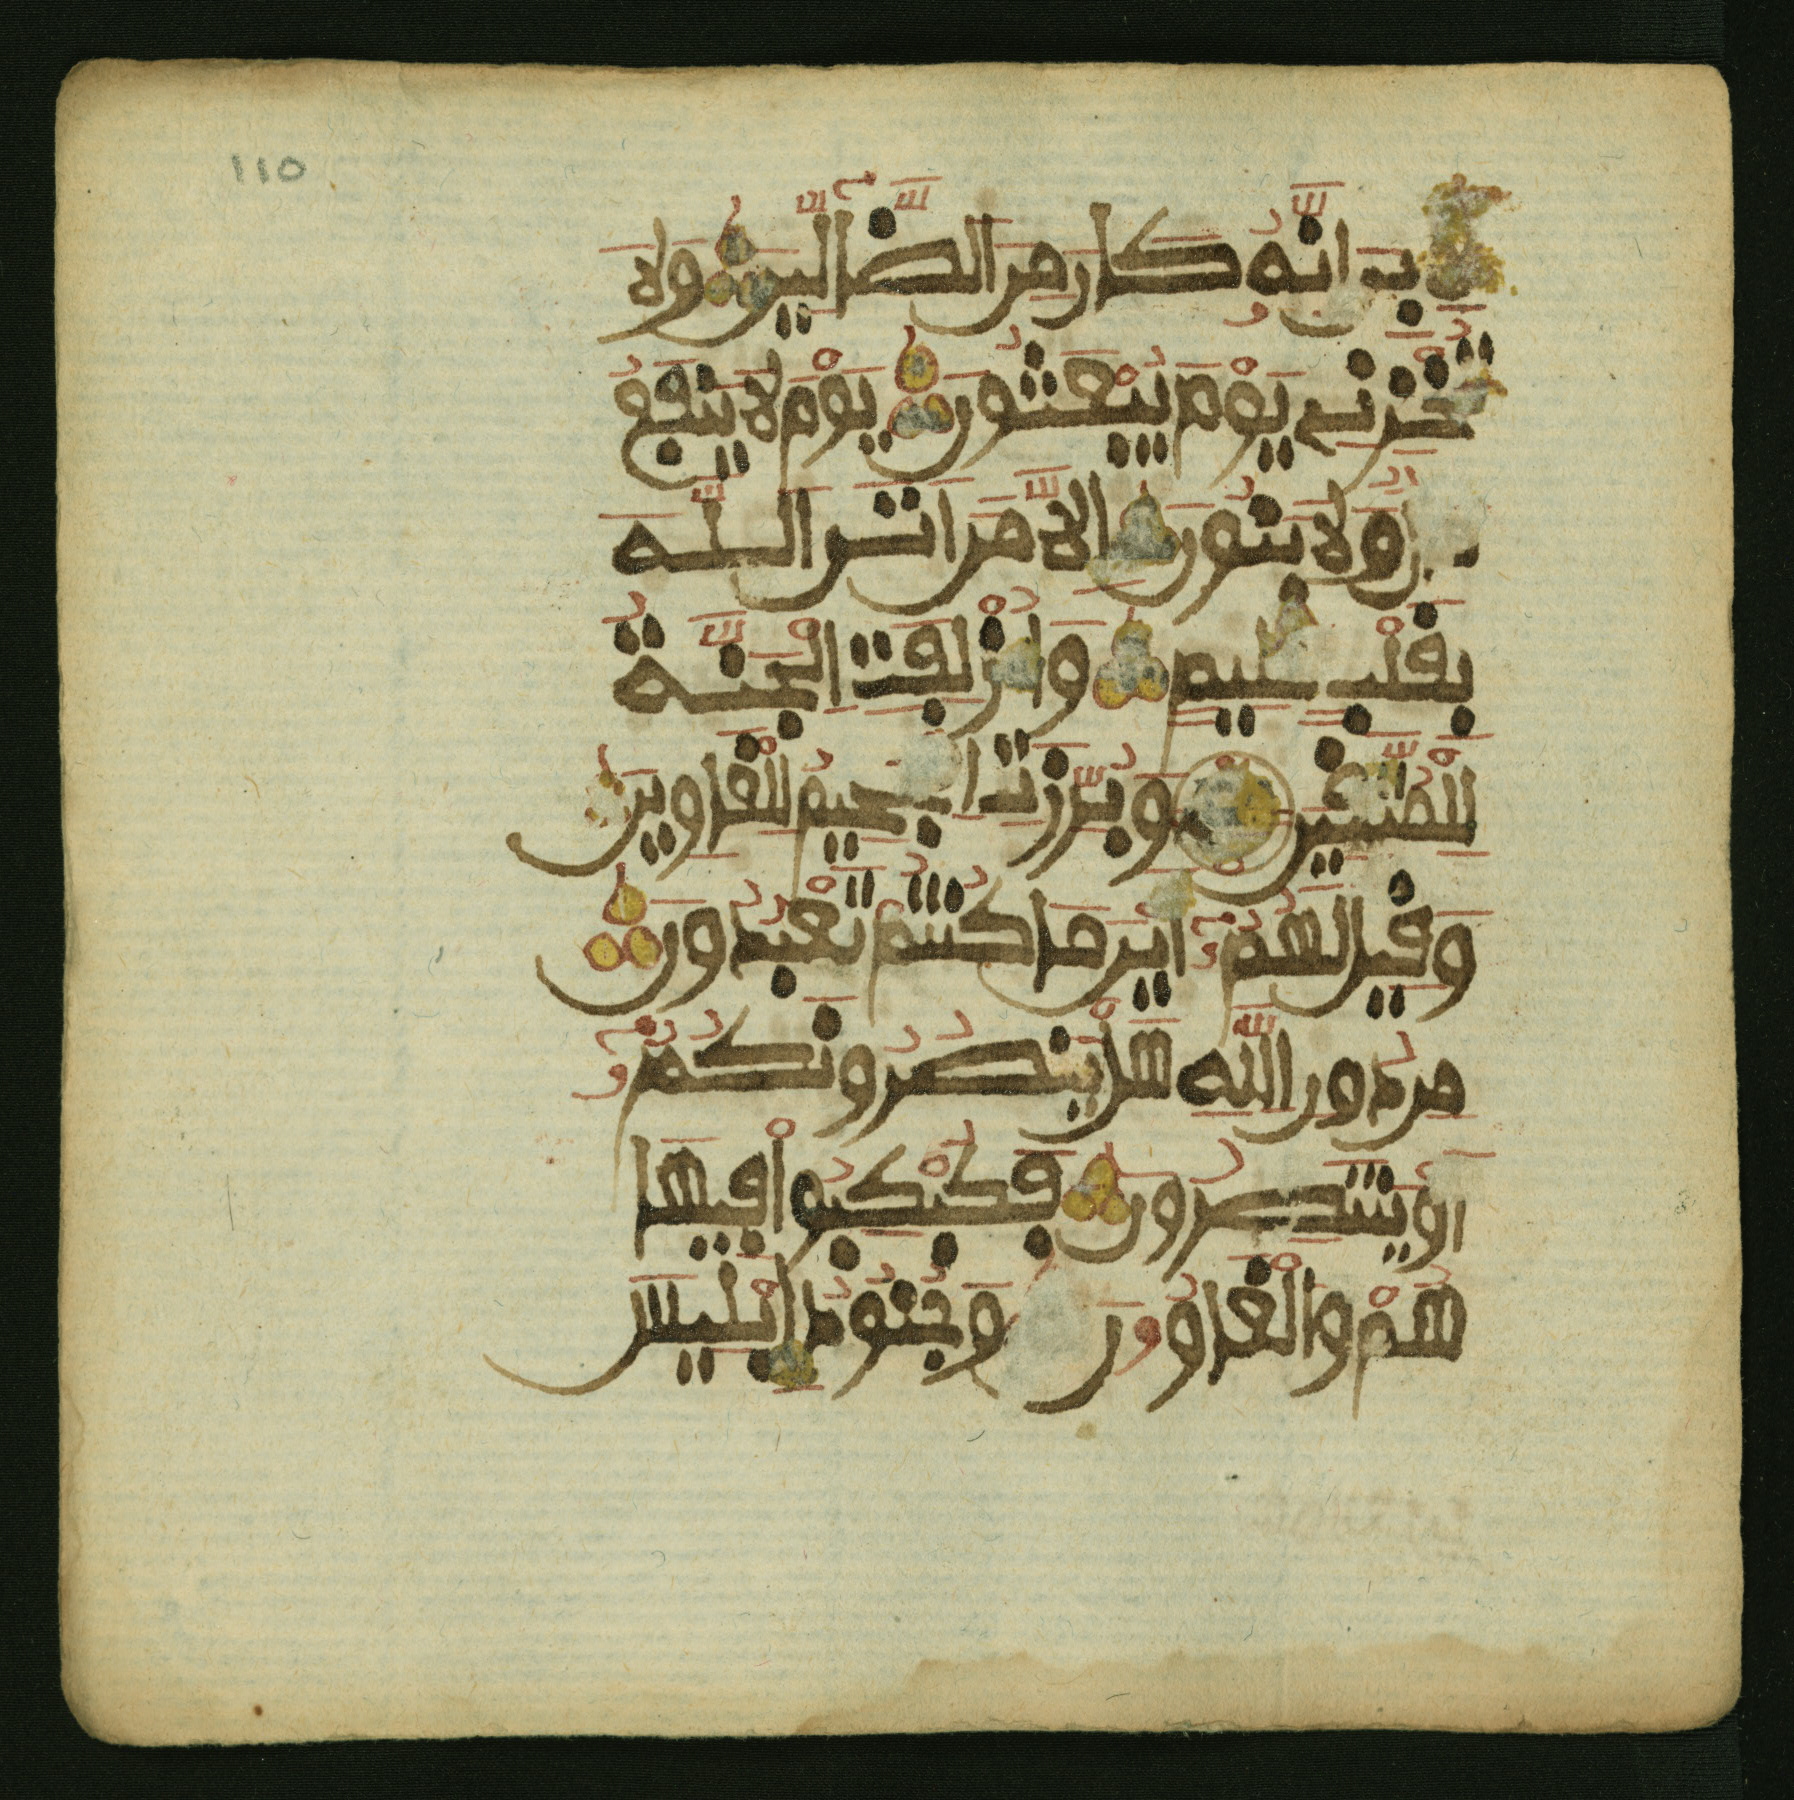 110
بي انه كان من الضالين ولا
تخزني يوم يبعثون يوم لا ينفع
ولا بنون الا من اتى الله
بقلب سليم وازلفت الجنة
للمتقين وبرزت الجحيم للغاوين
وقيل لهم اين ما كنتم تعبدون
من دون الله هل ينصرونكم
او ينتصرون فكبكبوا فيها
هم والغاوون وجنود ابليس